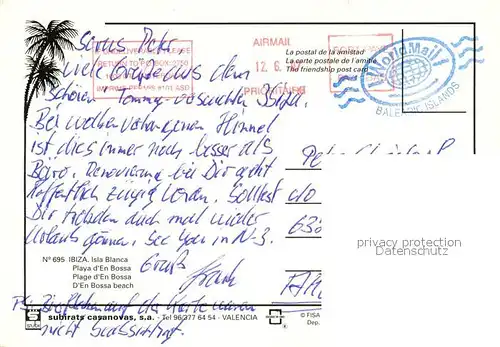 Servus Peter,
viele Grüße aus dem
schönen Tommy-verseuchten Ibiza.
Bei wolkenverhangenem Himmel
ist dies immer noch besser als
Büro. Renovierung bei Dir geht
hoffentlich zügig voran. Solltest
Dir trotzdem auch mal wieder
Urlaub gönnen. See you in N-3.
Gruß
Frank
PS: auf der Karte waren
nicht
RETURN TO P.O. BOX 2750
AIRMAIL
12. 6.
PRIORITAIRE
La postal de la amistad
La carte postale de l'amitié
The friendship post card
WorldMail
BALEARIC ISLANDS
Peter
privacy protection
Datenschutz
Nº 695 IBIZA. Isla Blanca
Playa d'En Bossa
Plage d'En Bossa
D'En Bossa beach
subirats casanovas, s.a. - Tel 96/377 64 54 - VALENCIA
© FISA
Dep.